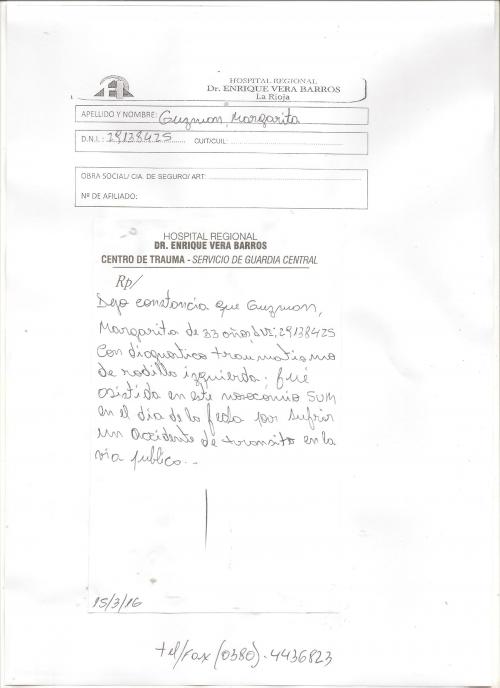 HOSPITAL REGIONAL
Dr. ENRIQUE VERA BARROS
La Rioja
APELLIDO Y NOMBRE: Guzman, Margarita
D.N.I.: 29138425 CUIT/CUIL:
OBRA SOCIAL/ CIA. DE SEGURO/ ART:
Nº DE AFILIADO:
HOSPITAL REGIONAL
DR. ENRIQUE VERA BARROS
CENTRO DE TRAUMA - SERVICIO DE GUARDIA CENTRAL
Rp/
Dejo constancia que Guzman,
Margarita de 33 años, DNI: 29138425
Con diagnostico traumatismo
de rodilla izquierda; fué
asistida en este nosocomio SUM
en el dia de la fecha por sufrir
un accidente de transito en la
via publica..-
15/3/16
tel/fax (0380). 4436823